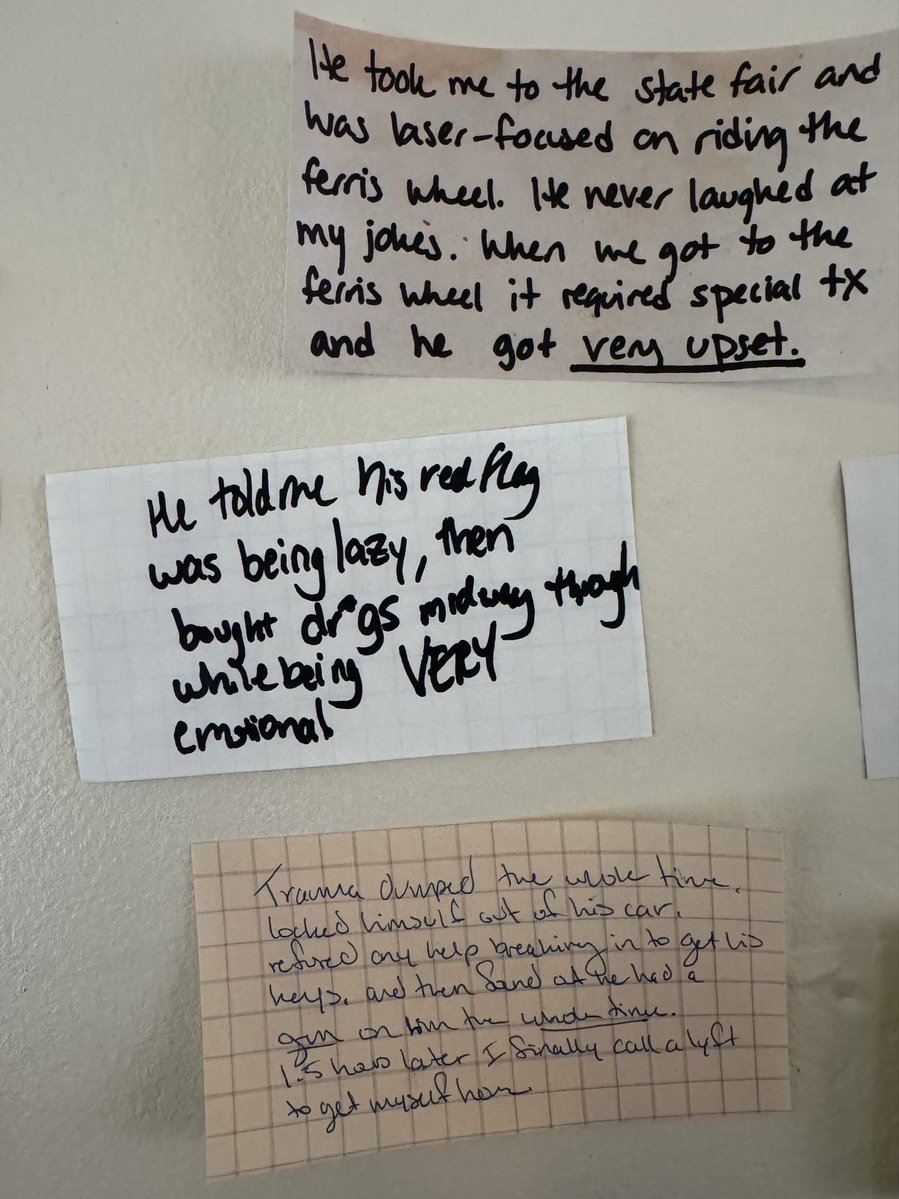 He took me to the state fair and
was laser-focused on riding the
ferris wheel. He never laughed at
my jokes. When we got to the
ferris wheel it required special tx
and he got very upset.
He told me his red flag
was being lazy, then
bought dr*gs midway through
while being VERY
emotional
Trauma dumped the whole time.
locked himself out of his car.
refused any help breaking in to get his
keys. and then found out he had a
gun on him the whole time.
1.5 hours later I finally call a lyft
to get myself home